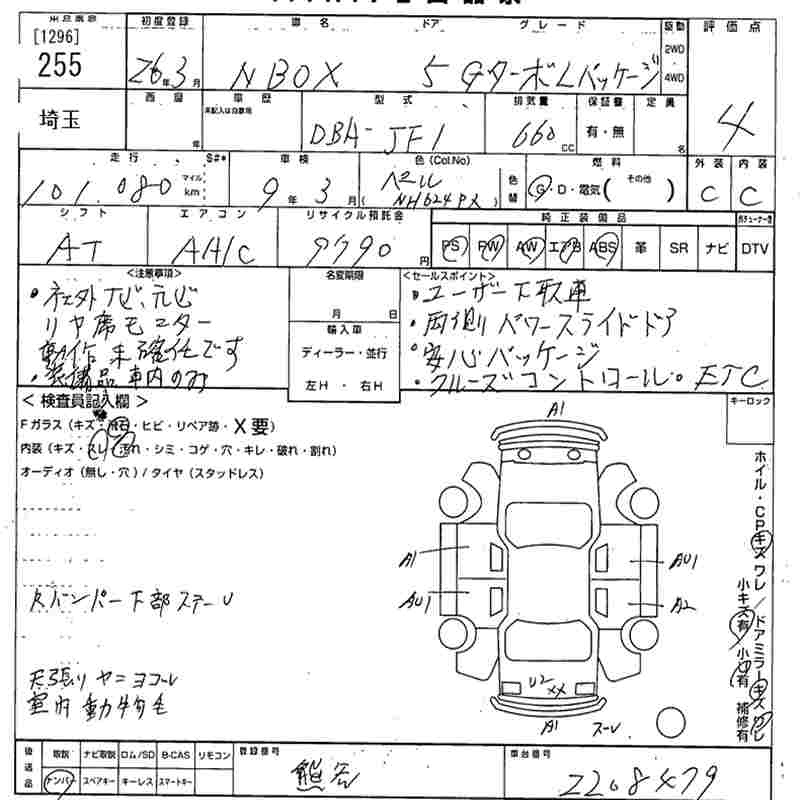 [1296]
255
初度登録
車名 ドア グレード
駆動 2WD 4WD
評価点
26年3月
N BOX 5 GターボLパッケージ
4
埼玉
車歴
未記入は自家用
型式
DBA-JF1
排気量
660cc
保証書
有・無
定員
名
走行
S#*
101,080
マイル
km
車検
9年3月
色(Col.No)
パール
NH624PX
色替
燃料
G・D・電気(その他)
外装 内装
C C
シフト
AT
エアコン
AAC
リサイクル預託金
9790円
純正装備品
PS PW AW エアB ABS 革 SR ナビ DTV
<注意事項>
・社外ナビ、テレビ
リヤ席モニター
動作未確認です
・装備品車内のみ
名変期限
月 日
輸入車
ディーラー・並行
左H・右H
<セールスポイント>
・ユーザー下取車
・両側パワースライドドア
・安心パッケージ
・クルーズコントロール。ETC
<検査員記入欄>
Fガラス(キズ・飛石・ヒビ・リペア跡・X要)
内装(キズ・スレ・汚れ・シミ・コゲ・穴・キレ・破れ・割れ)
オーディオ(無し・穴)/タイヤ(スタッドレス)
キーロック
ホイル・CPキズワレ/ドアミラーキズワレ
小キズ有 小凹有 補修有
A1
A1 AU1
AU1 A2
Rバンパー下部スレー
U2
XX
A1 スーレ
天張りヤニヨゴレ
室内動物毛
後送品
取説 ナビ取説 ロム/SD B-CAS リモコン
ナンバー スペアキー キーレス スマートキー
登録番号
熊谷
車台番号
2208479